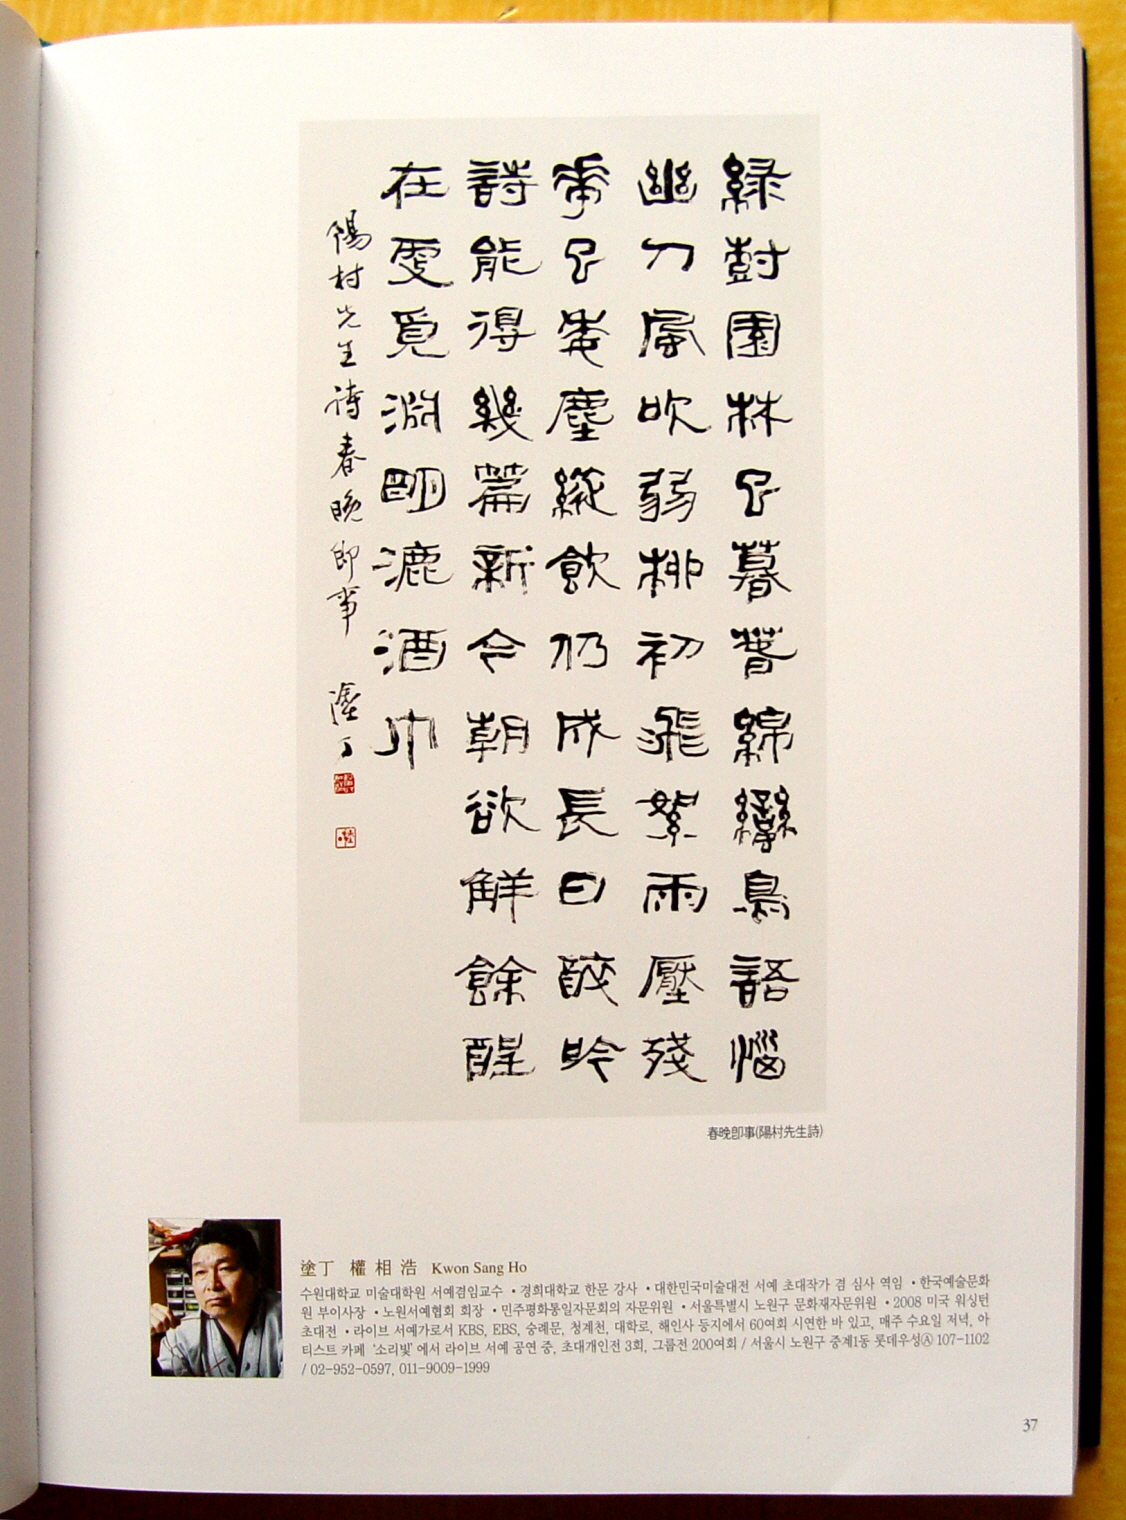 緑樹園林已暮春綿蠻鳥語惱
幽人風吹弱柳初飛絮雨壓殘
花已委塵縱飲仍成長日醉吟
詩能得幾篇新今朝欲解餘酲
在更覓淵明漉酒巾
陽村先生詩春晚即事 塗丁
春晚卽事(陽村先生詩)
塗丁 權相浩 Kwon Sang Ho
수원대학교 미술대학원 서예겸임교수 • 경희대학교 한문 강사 • 대한민국미술대전 서예 초대작가 겸 심사 역임 • 한국예술문화
원 부이사장 • 노원서예협회 회장 • 민주평화통일자문회의 자문위원 • 서울특별시 노원구 문화재자문위원 • 2008 미국 워싱턴
초대전 • 라이브 서예가로서 KBS, EBS, 숭례문, 청계천, 대학로, 해인사 등지에서 60여회 시연한 바 있고, 매주 수요일 저녁, 아
티스트 카페 '소리빛' 에서 라이브 서예 공연 중, 초대개인전 3회, 그룹전 200여회 / 서울시 노원구 중계1동 롯데우성Ⓐ 107-1102
/ 02-952-0597, 011-9009-1999
37